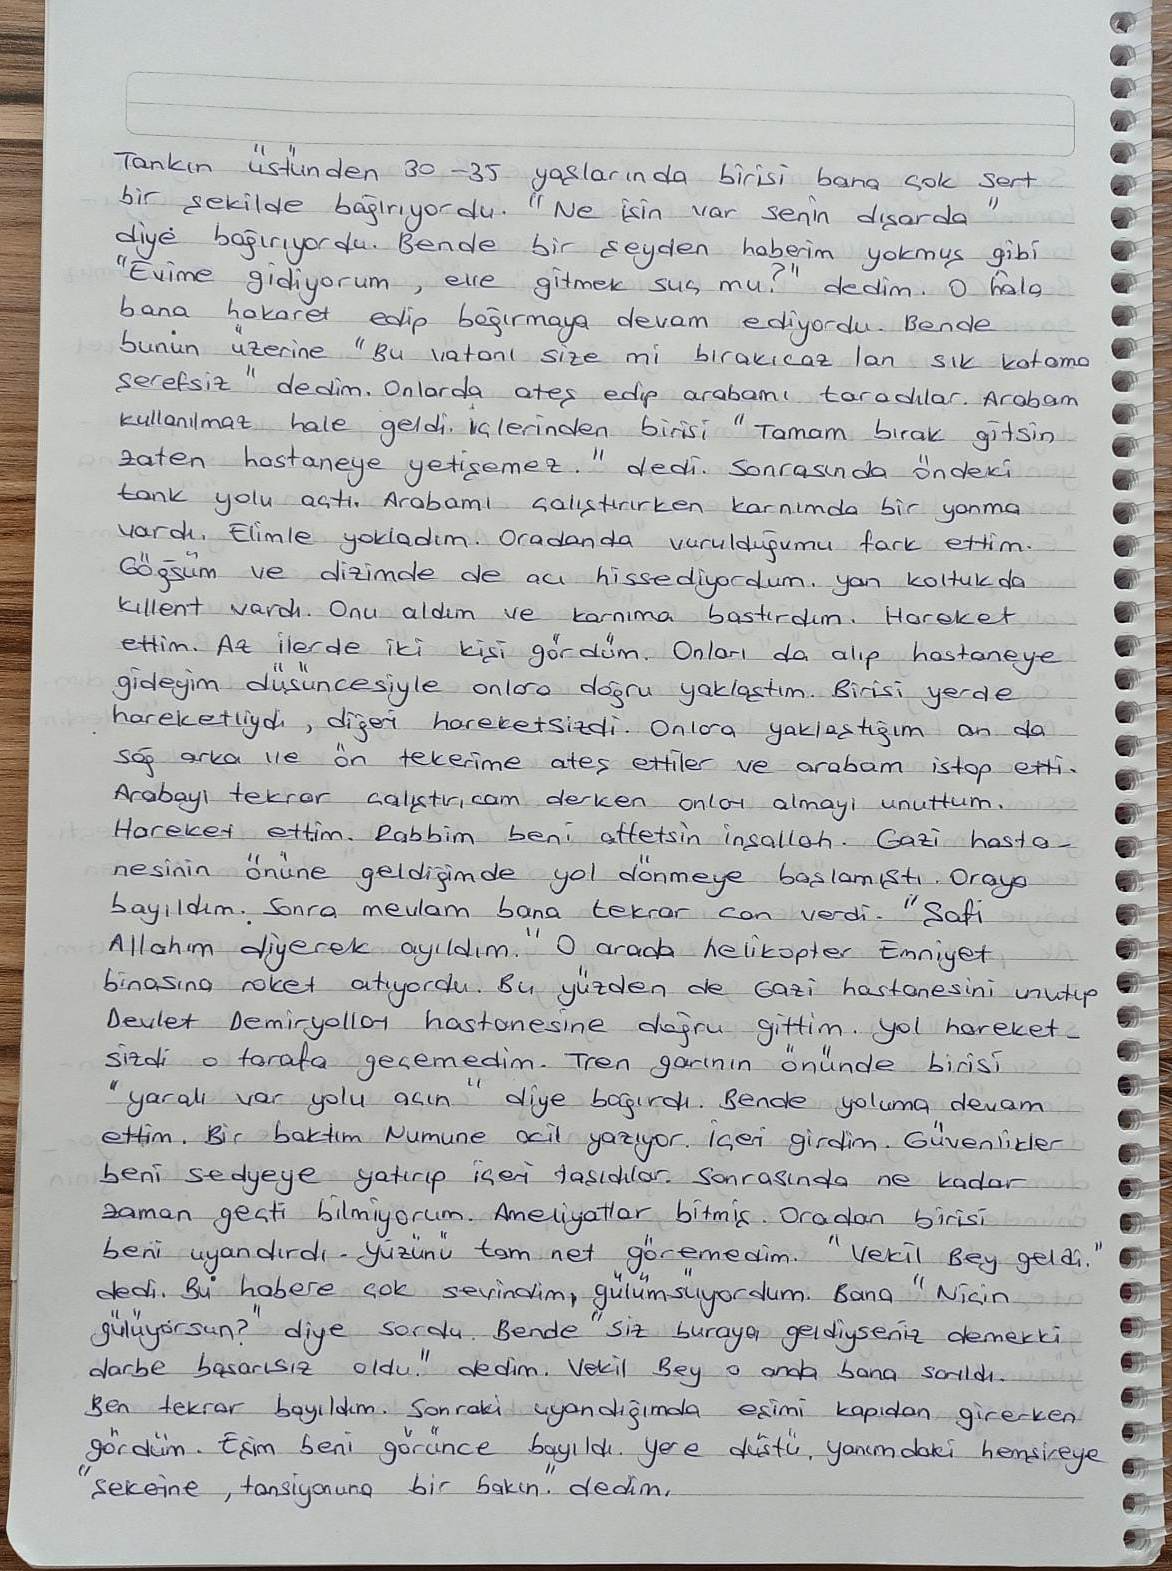 Tankın üstünden 30-35 yaşlarında birisi bana çok sert
bir şekilde bağırıyordu. "Ne işin var senin dışarda"
diye bağırıyordu. Bende bir şeyden haberim yokmuş gibi
"Evime gidiyorum, eve gitmek suç mu?" dedim. O hala
bana hakaret edip bağırmaya devam ediyordu. Bende
bunun üzerine "Bu vatanı size mi bırakıcaz lan sık kafama
şerefsiz" dedim. Onlarda ateş edip arabamı taradılar. Arabam
kullanılmaz hale geldi. İçlerinden birisi "Tamam bırak gitsin
zaten hastaneye yetişemez." dedi. Sonrasında öndeki
tank yolu açtı. Arabamı çalıştırırken karnımda bir yanma
vardı. Elimle yokladım. Oradanda vurulduğumu fark ettim.
Göğsüm ve dizimde de acı hissediyordum. Yan koltukda
kıllent vardı. Onu aldım ve karnıma bastırdım. Hareket
ettim. Az ilerde iki kişi gördüm. Onları da alıp hastaneye
gideyim düşüncesiyle onlara doğru yaklaştım. Birisi yerde
hareketliydi, diğeri hareketsizdi. Onlara yaklaştığım an da
sağ arka ve ön tekerime ateş ettiler ve arabam istop etti.
Arabayı tekrar çalıştırıcam derken onları almayı unuttum.
Hareket ettim. Rabbim beni affetsin inşallah. Gazi hasta-
nesinin önüne geldiğimde yol dönmeye başlamıştı. Oraya
bayıldım. Sonra mevlam bana tekrar can verdi. "Şafi
Allahım diyerek ayıldım." O arada helikopter Emniyet
binasına roket atıyordu. Bu yüzden de Gazi hastanesini unutup
Devlet Demiryolları hastanesine doğru gittim. Yol hareket-
sizdi o tarafa geçemedim. Tren garının önünde birisi
"yaralı var yolu açın" diye bağırdı. Bende yoluma devam
ettim. Bir baktım Numune acil yazıyor. İçeri girdim. Güvenlikler
beni sedyeye yatırıp içeri taşıdılar. Sonrasında ne kadar
zaman geçti bilmiyorum. Ameliyatlar bitmiş. Oradan birisi
beni uyandırdı. Yüzünü tam net göremedim. "Vekil Bey geldi."
dedi. Bu habere çok sevindim, gülümsüyordum. Bana "Niçin
gülüyorsun?" diye sordu. Bende "Siz buraya geldiyseniz demekki
darbe başarısız oldu." dedim. Vekil Bey o anda bana sarıldı.
Ben tekrar bayıldım. Sonraki uyandığımda eşimi kapıdan girerken
gördüm. Eşim beni görünce bayıldı. Yere düştü. Yanımdaki hemşireye
"Şekerine, tansiyonuna bir bakın." dedim.